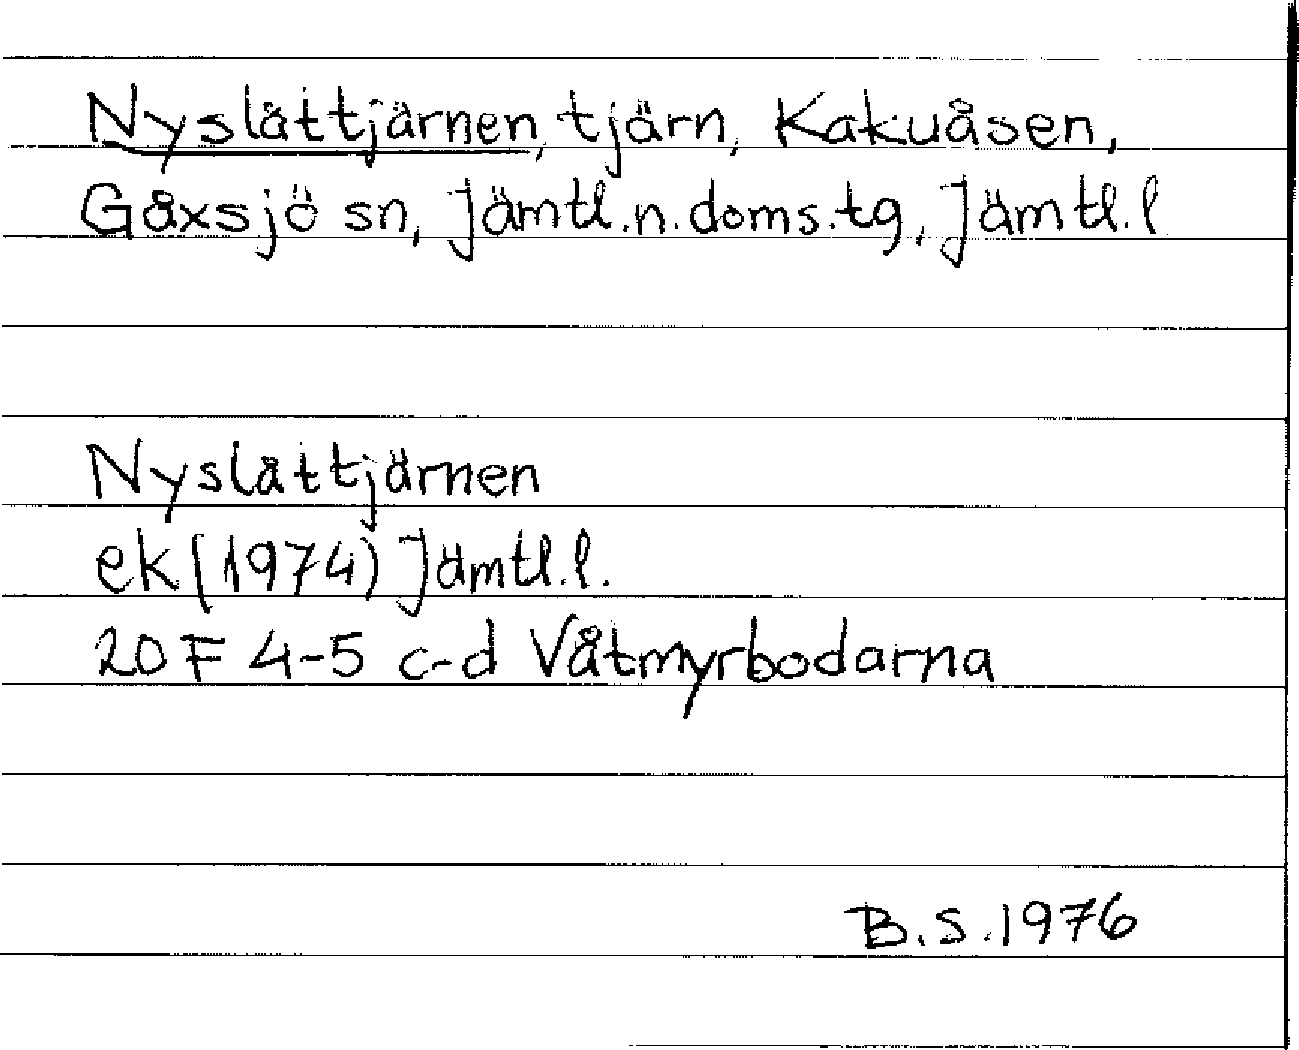 Nyslåttjärnen, tjärn, Kakuåsen,
Gåxsjö sn, Jämtl.n.doms.tg, Jämtl.l
Nyslåttjärnen
ek (1974) Jämtl.l.
20 F 4-5 c-d Våtmyrbodarna
B.S.1976